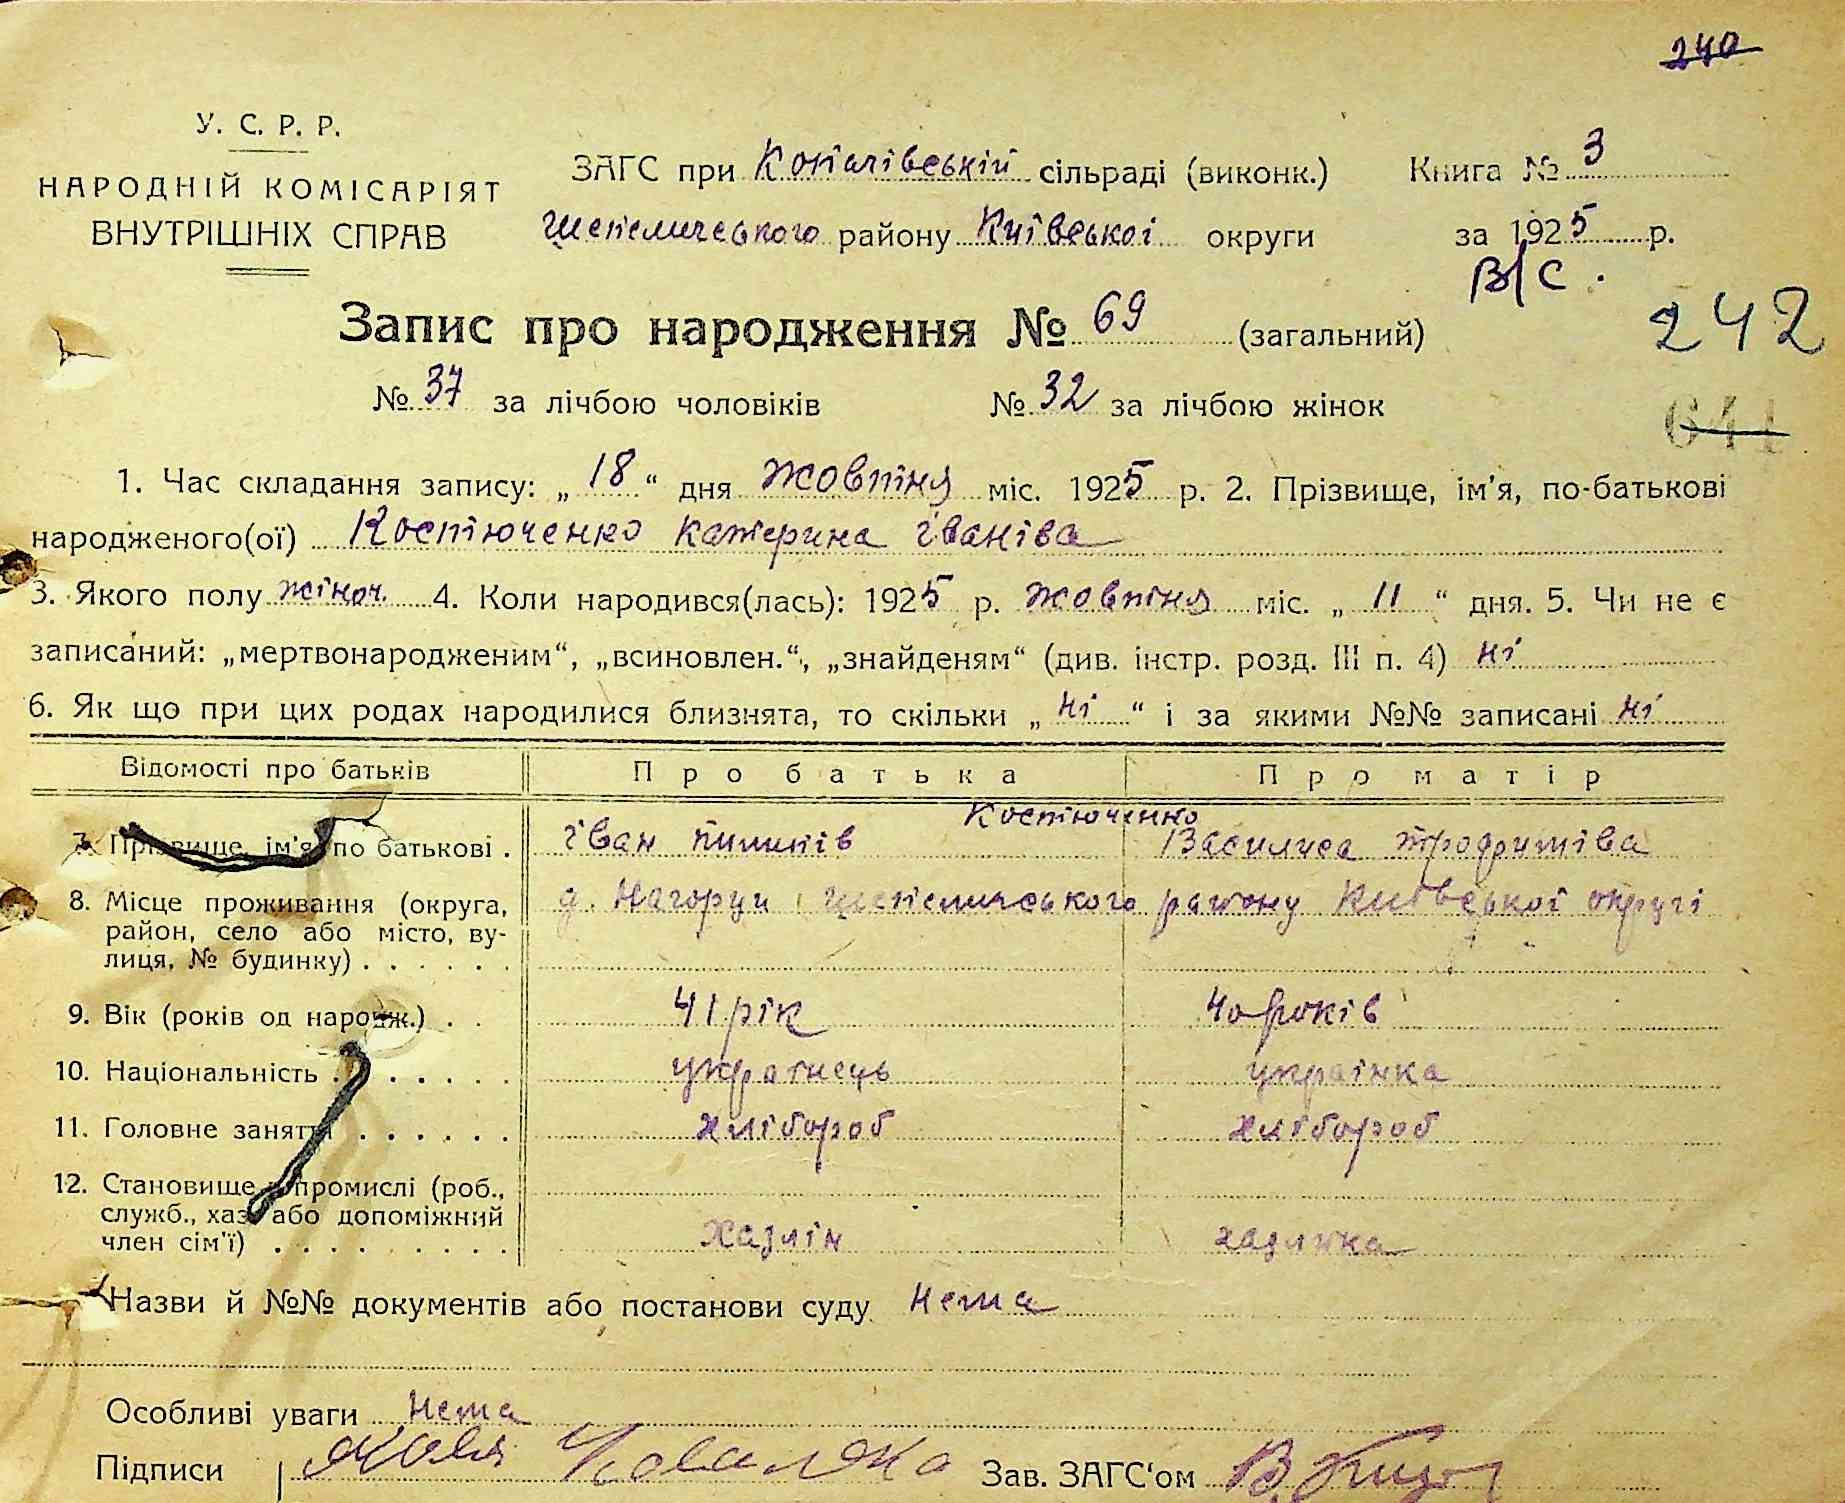 240
У. С. Р. Р.
НАРОДНІЙ КОМІСАРІЯТ
ВНУТРІШНІХ СПРАВ
ЗАГС при Копачівській сільраді (виконк.)
Шепелиського району Київської округи
Книга № 3
за 1925 р.
В/С.
Запис про народження № 69 (загальний)
242
№ 37 за лічбою чоловіків № 32 за лічбою жінок
641
1. Час складання запису: „ 18 “ дня жовтня міс. 1925 р. 2. Прізвище, ім'я, по-батькові
народженого(ої) Костюченко Катерина Іванівна
3. Якого полу жіноч. 4. Коли народився(лась): 1925 р. жовтня міс. „ 11 “ дня. 5. Чи не є
записаний: „мертвонародженим“, „всиновлен.“, „знайденям“ (див. інстр. розд. III п. 4) ні
6. Як що при цих родах народилися близнята, то скільки „ ні “ і за якими №№ записані ні
Відомості про батьків Про батька Про матір
Костюченко
7. Прізвище, ім'я по батькові . Іван Василиса
8. Місце проживання (округа, район, село або місто, вулиця, № будинку) . . . . . . д. Нагорци Шепелиського району Київської округі
9. Вік (років од народж.) . . 41 рік 40 років
10. Національність . . . . . . українець українка
11. Головне заняття . . . . . . хлібороб хлібороб
12. Становище в промислі (роб.,
служб., хаз. або допоміжний
член сім'ї) . . . . . . . . . хазяїн хазяйка
Назви й №№ документів або постанови суду нема
Особливі уваги нема
Підписи Зав. ЗАГС'ом